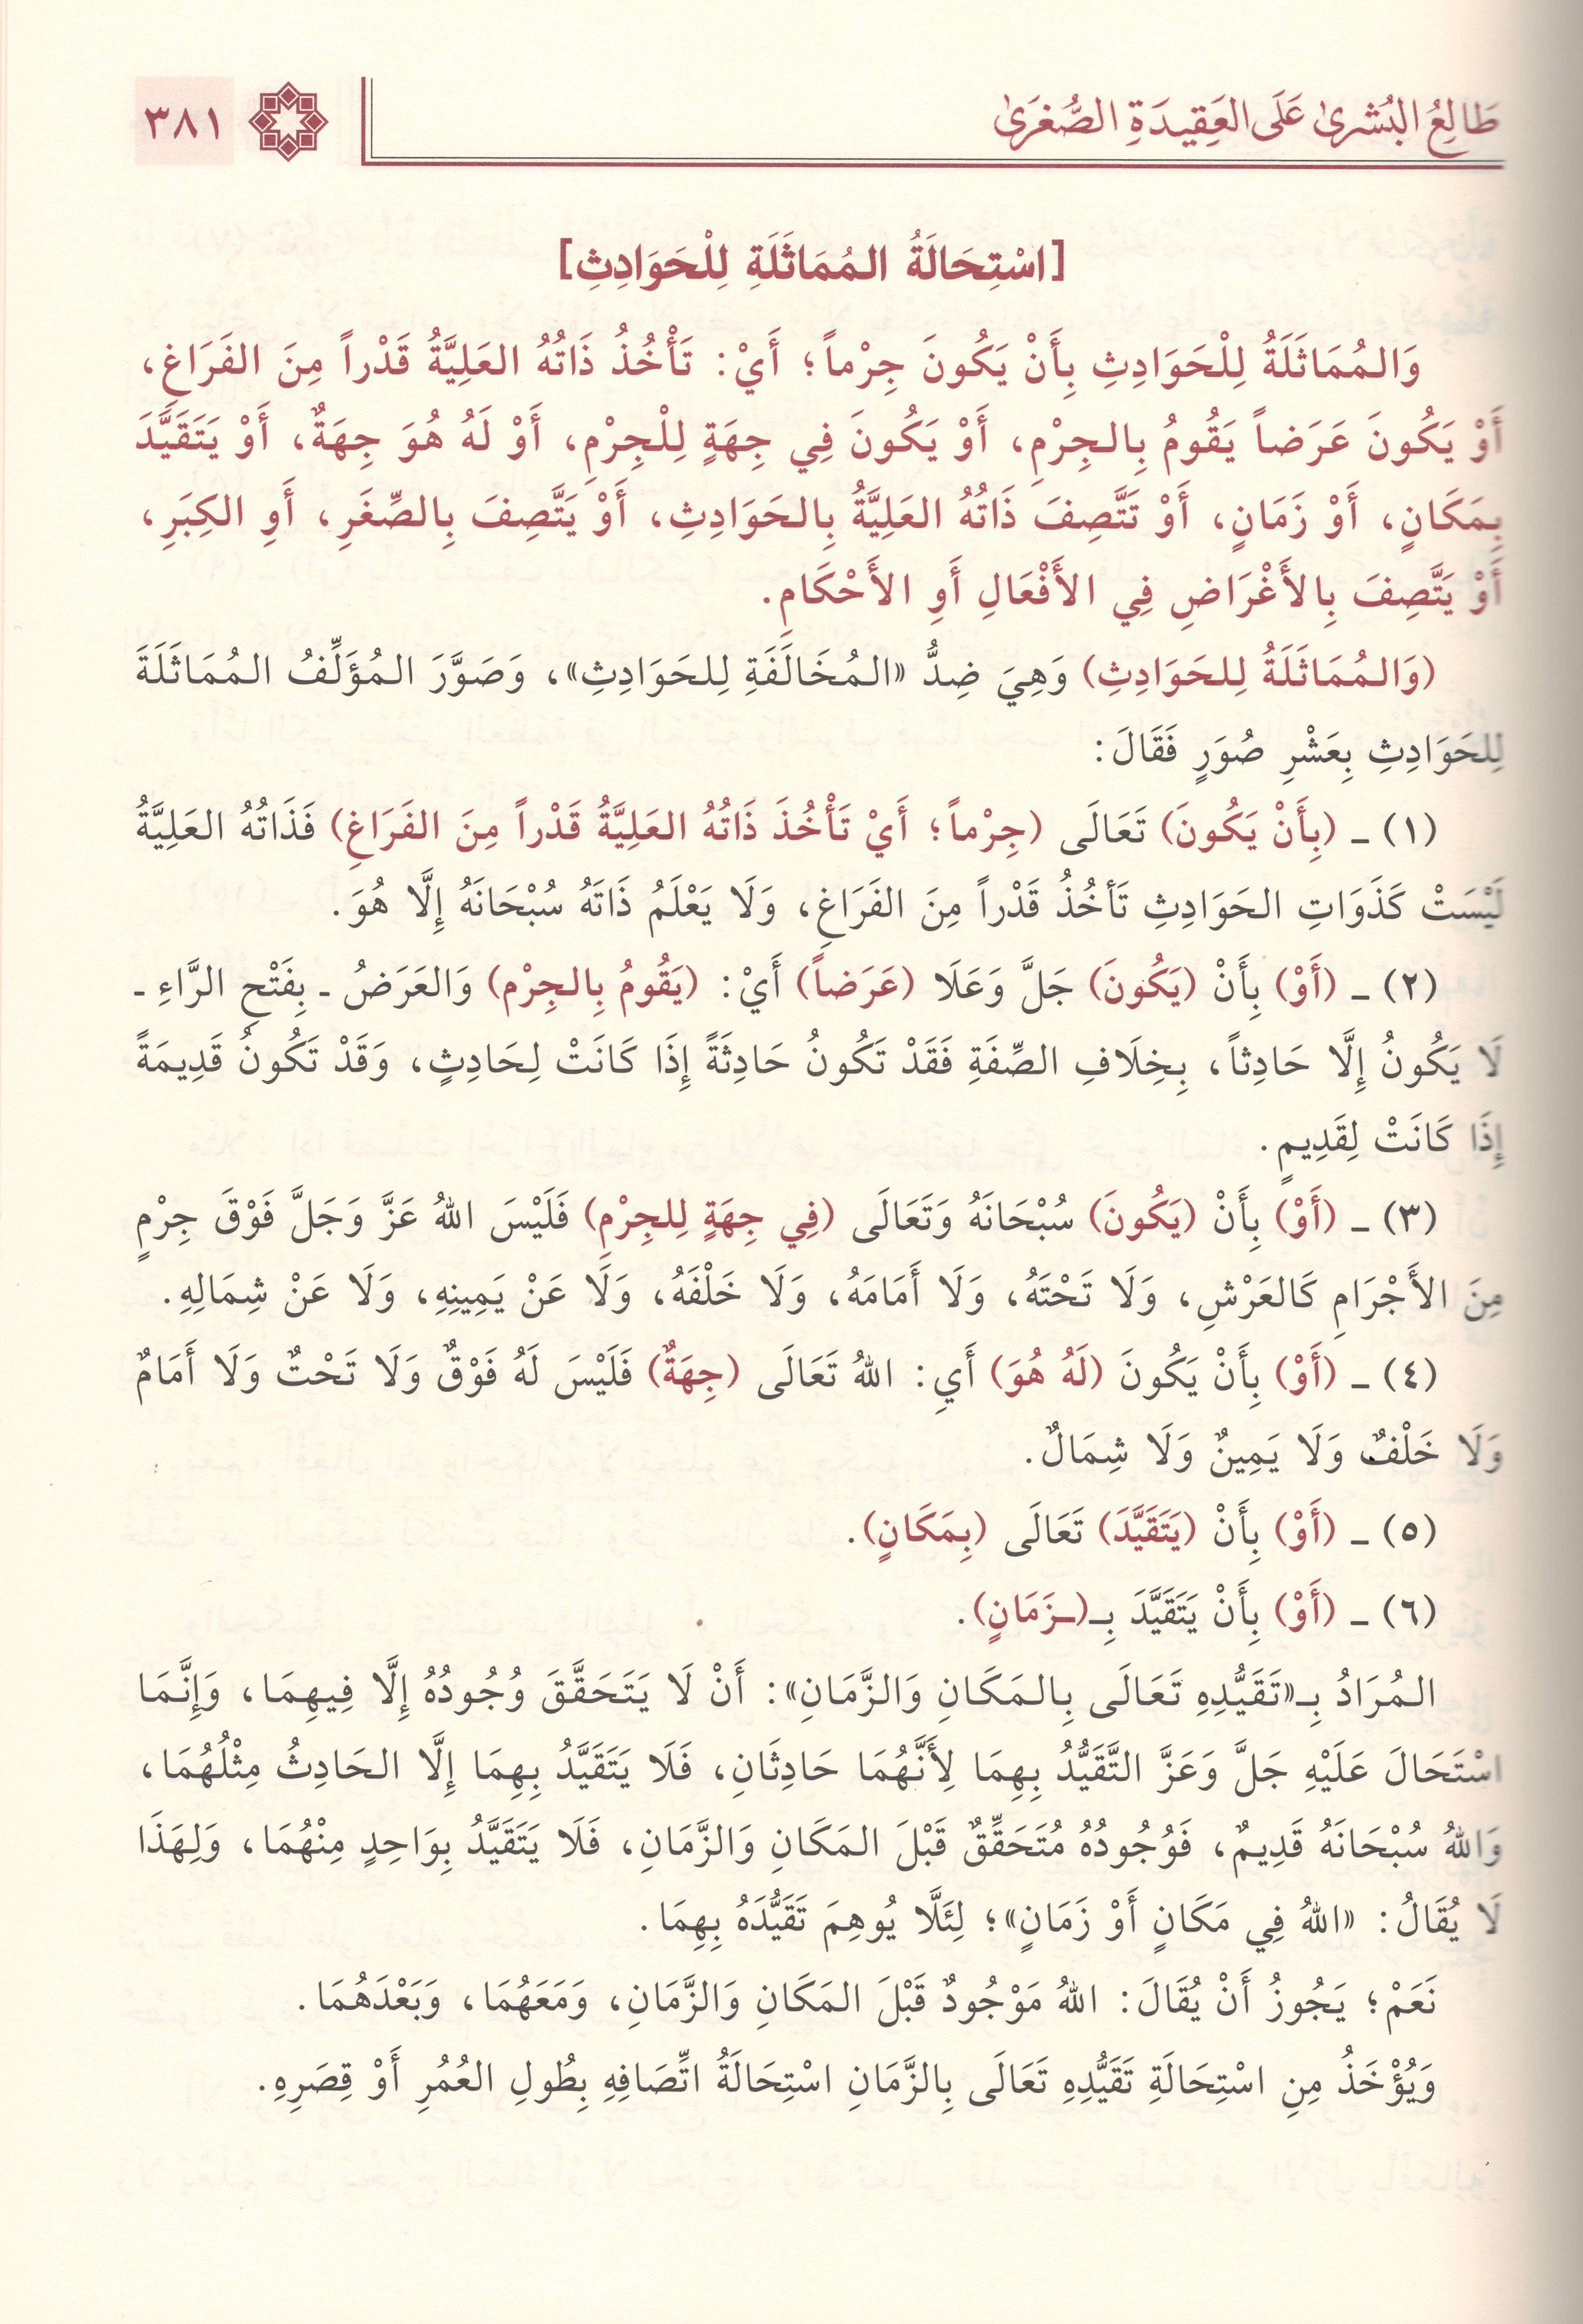 طَالِعُ البُشرىٰ عَلَى العَقِيدَةِ الصُّغرَىٰ
٣٨١
[اسْتِحَالَةُ المُمَاثَلَةِ لِلْحَوَادِثِ]
وَالمُمَاثَلَةُ لِلْحَوَادِثِ بِأَنْ يَكُونَ جِرْماً؛ أَيْ: تَأْخُذُ ذَاتُهُ العَلِيَّةُ قَدْراً مِنَ الفَرَاغِ،
أَوْ يَكُونَ عَرَضاً يَقُومُ بِالجِرْمِ، أَوْ يَكُونَ فِي جِهَةٍ لِلْجِرْمِ، أَوْ لَهُ هُوَ جِهَةٌ، أَوْ يَتَقَيَّدَ
بِمَكَانٍ، أَوْ زَمَانٍ، أَوْ تَتَّصِفَ ذَاتُهُ العَلِيَّةُ بِالحَوَادِثِ، أَوْ يَتَّصِفَ بِالصِّغَرِ، أَوِ الكِبَرِ،
أَوْ يَتَّصِفَ بِالأَغْرَاضِ فِي الأَفْعَالِ أَوِ الأَحْكَامِ.
(وَالمُمَاثَلَةُ لِلحَوَادِثِ) وَهِيَ ضِدُّ «المُخَالَفَةِ لِلحَوَادِثِ»، وَصَوَّرَ المُؤَلِّفُ المُمَاثَلَةَ
لِلحَوَادِثِ بِعَشْرِ صُوَرٍ فَقَالَ:
(١) ـ (بِأَنْ يَكُونَ) تَعَالَى (جِرْماً؛ أَيْ تَأْخُذَ ذَاتُهُ العَلِيَّةُ قَدْراً مِنَ الفَرَاغِ) فَذَاتُهُ العَلِيَّةُ
لَيْسَتْ كَذَوَاتِ الحَوَادِثِ تَأخُذُ قَدْراً مِنَ الفَرَاغِ، وَلَا يَعْلَمُ ذَاتَهُ سُبْحَانَهُ إِلَّا هُوَ.
(٢) ـ (أَوْ) بِأَنْ (يَكُونَ) جَلَّ وَعَلَا (عَرَضاً) أَيْ: (يَقُومُ بِالجِرْم) وَالعَرَضُ ـ بِفَتْحِ الرَّاءِ ـ
لَا يَكُونُ إِلَّا حَادِثاً، بِخِلَافِ الصِّفَةِ فَقَدْ تَكُونُ حَادِثَةً إِذَا كَانَتْ لِحَادِثٍ، وَقَدْ تَكُونُ قَدِيمَةً
إِذَا كَانَتْ لِقَدِيمٍ.
(٣) ـ (أَوْ) بِأَنْ (يَكُونَ) سُبْحَانَهُ وَتَعَالَى (فِي جِهَةٍ لِلجِرْمِ) فَلَيْسَ اللهُ عَزَّ وَجَلَّ فَوْقَ جِرْمٍ
مِنَ الأَجْرَامِ كَالعَرْشِ، وَلَا تَحْتَهُ، وَلَا أَمَامَهُ، وَلَا خَلْفَهُ، وَلَا عَنْ يَمِينِهِ، وَلَا عَنْ شِمَالِهِ.
(٤) ـ (أَوْ) بِأَنْ يَكُونَ (لَهُ هُوَ) أَيِ: اللهُ تَعَالَى (جِهَةٌ) فَلَيْسَ لَهُ فَوْقٌ وَلَا تَحْتٌ وَلَا أَمَامٌ
وَلَا خَلْفٌ وَلَا يَمِينٌ وَلَا شِمَالٌ.
(٥) ـ (أَوْ) بِأَنْ (يَتَقَيَّدَ) تَعَالَى (بِمَكَانٍ).
(٦) ـ (أَوْ) بِأَنْ يَتَقَيَّدَ بِـ(ـزَمَانٍ).
المُرَادُ بِـ«تَقَيُّدِهِ تَعَالَى بِالمَكَانِ وَالزَّمَانِ»: أَنْ لَا يَتَحَقَّقَ وُجُودُهُ إِلَّا فِيهِمَا، وَإِنَّمَا
اسْتَحَالَ عَلَيْهِ جَلَّ وَعَزَّ التَّقَيُّدُ بِهِمَا لِأَنَّهُمَا حَادِثَانِ، فَلَا يَتَقَيَّدُ بِهِمَا إِلَّا الحَادِثُ مِثْلُهُمَا،
وَاللهُ سُبْحَانَهُ قَدِيمٌ، فَوُجُودُهُ مُتَحَقِّقٌ قَبْلَ المَكَانِ وَالزَّمَانِ، فَلَا يَتَقَيَّدُ بِوَاحِدٍ مِنْهُمَا، وَلِهَذَا
لَا يُقَالُ: «اللهُ فِي مَكَانٍ أَوْ زَمَانٍ»؛ لِئَلَّا يُوهِمَ تَقَيُّدَهُ بِهِمَا.
نَعَمْ؛ يَجُوزُ أَنْ يُقَالَ: اللهُ مَوْجُودٌ قَبْلَ المَكَانِ وَالزَّمَانِ، وَمَعَهُمَا، وَبَعْدَهُمَا.
وَيُؤْخَذُ مِنِ اسْتِحَالَةِ تَقَيُّدِهِ تَعَالَى بِالزَّمَانِ اسْتِحَالَةُ اتِّصَافِهِ بِطُولِ العُمُرِ أَوْ قِصَرِهِ.